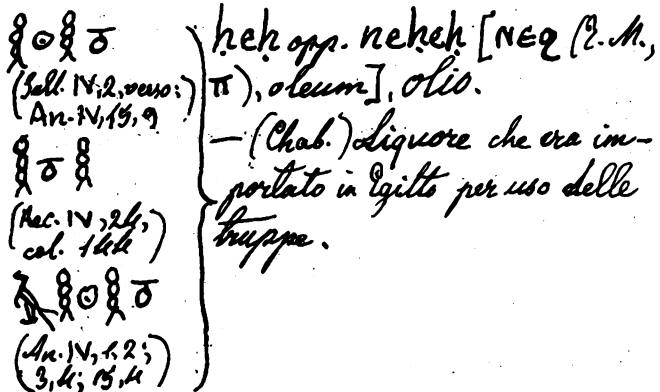 𓎛𓇳𓎛
(Sall. IV, 2, verso;
An. IV, 15, 9)
(Rec. IV, 24,
col. 144)
(An. IV, 1, 2;
3, 4; 15, 4)
ḥeḥ opp. neḥeḥ [ⲛⲉϩ (T. M.,
π), oleum], olio.
— (Chab.) Liquore che era im-
portato in Egitto per uso delle
truppe.